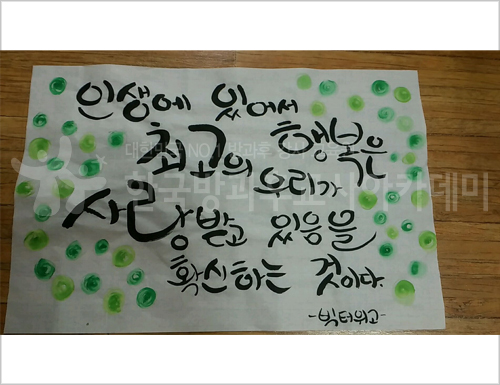 인생에 있어서
최고의 행복은
우리가
사랑받고 있음을
확신하는 것이다.
-빅터위고-
한국방과후교사아카데미